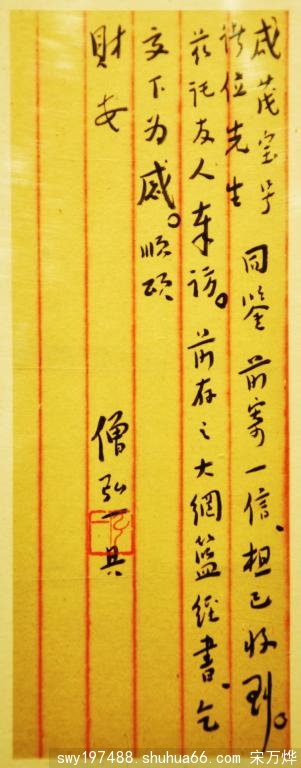 咸茂宝号
諸位先生
同鑒 前寄一信、想已收到。
茲託友人奉訪。前存之大網籃經書、乞
交下为感。順頌
財安
僧弘一具
swy197488.shuhua66.com 宋万烨